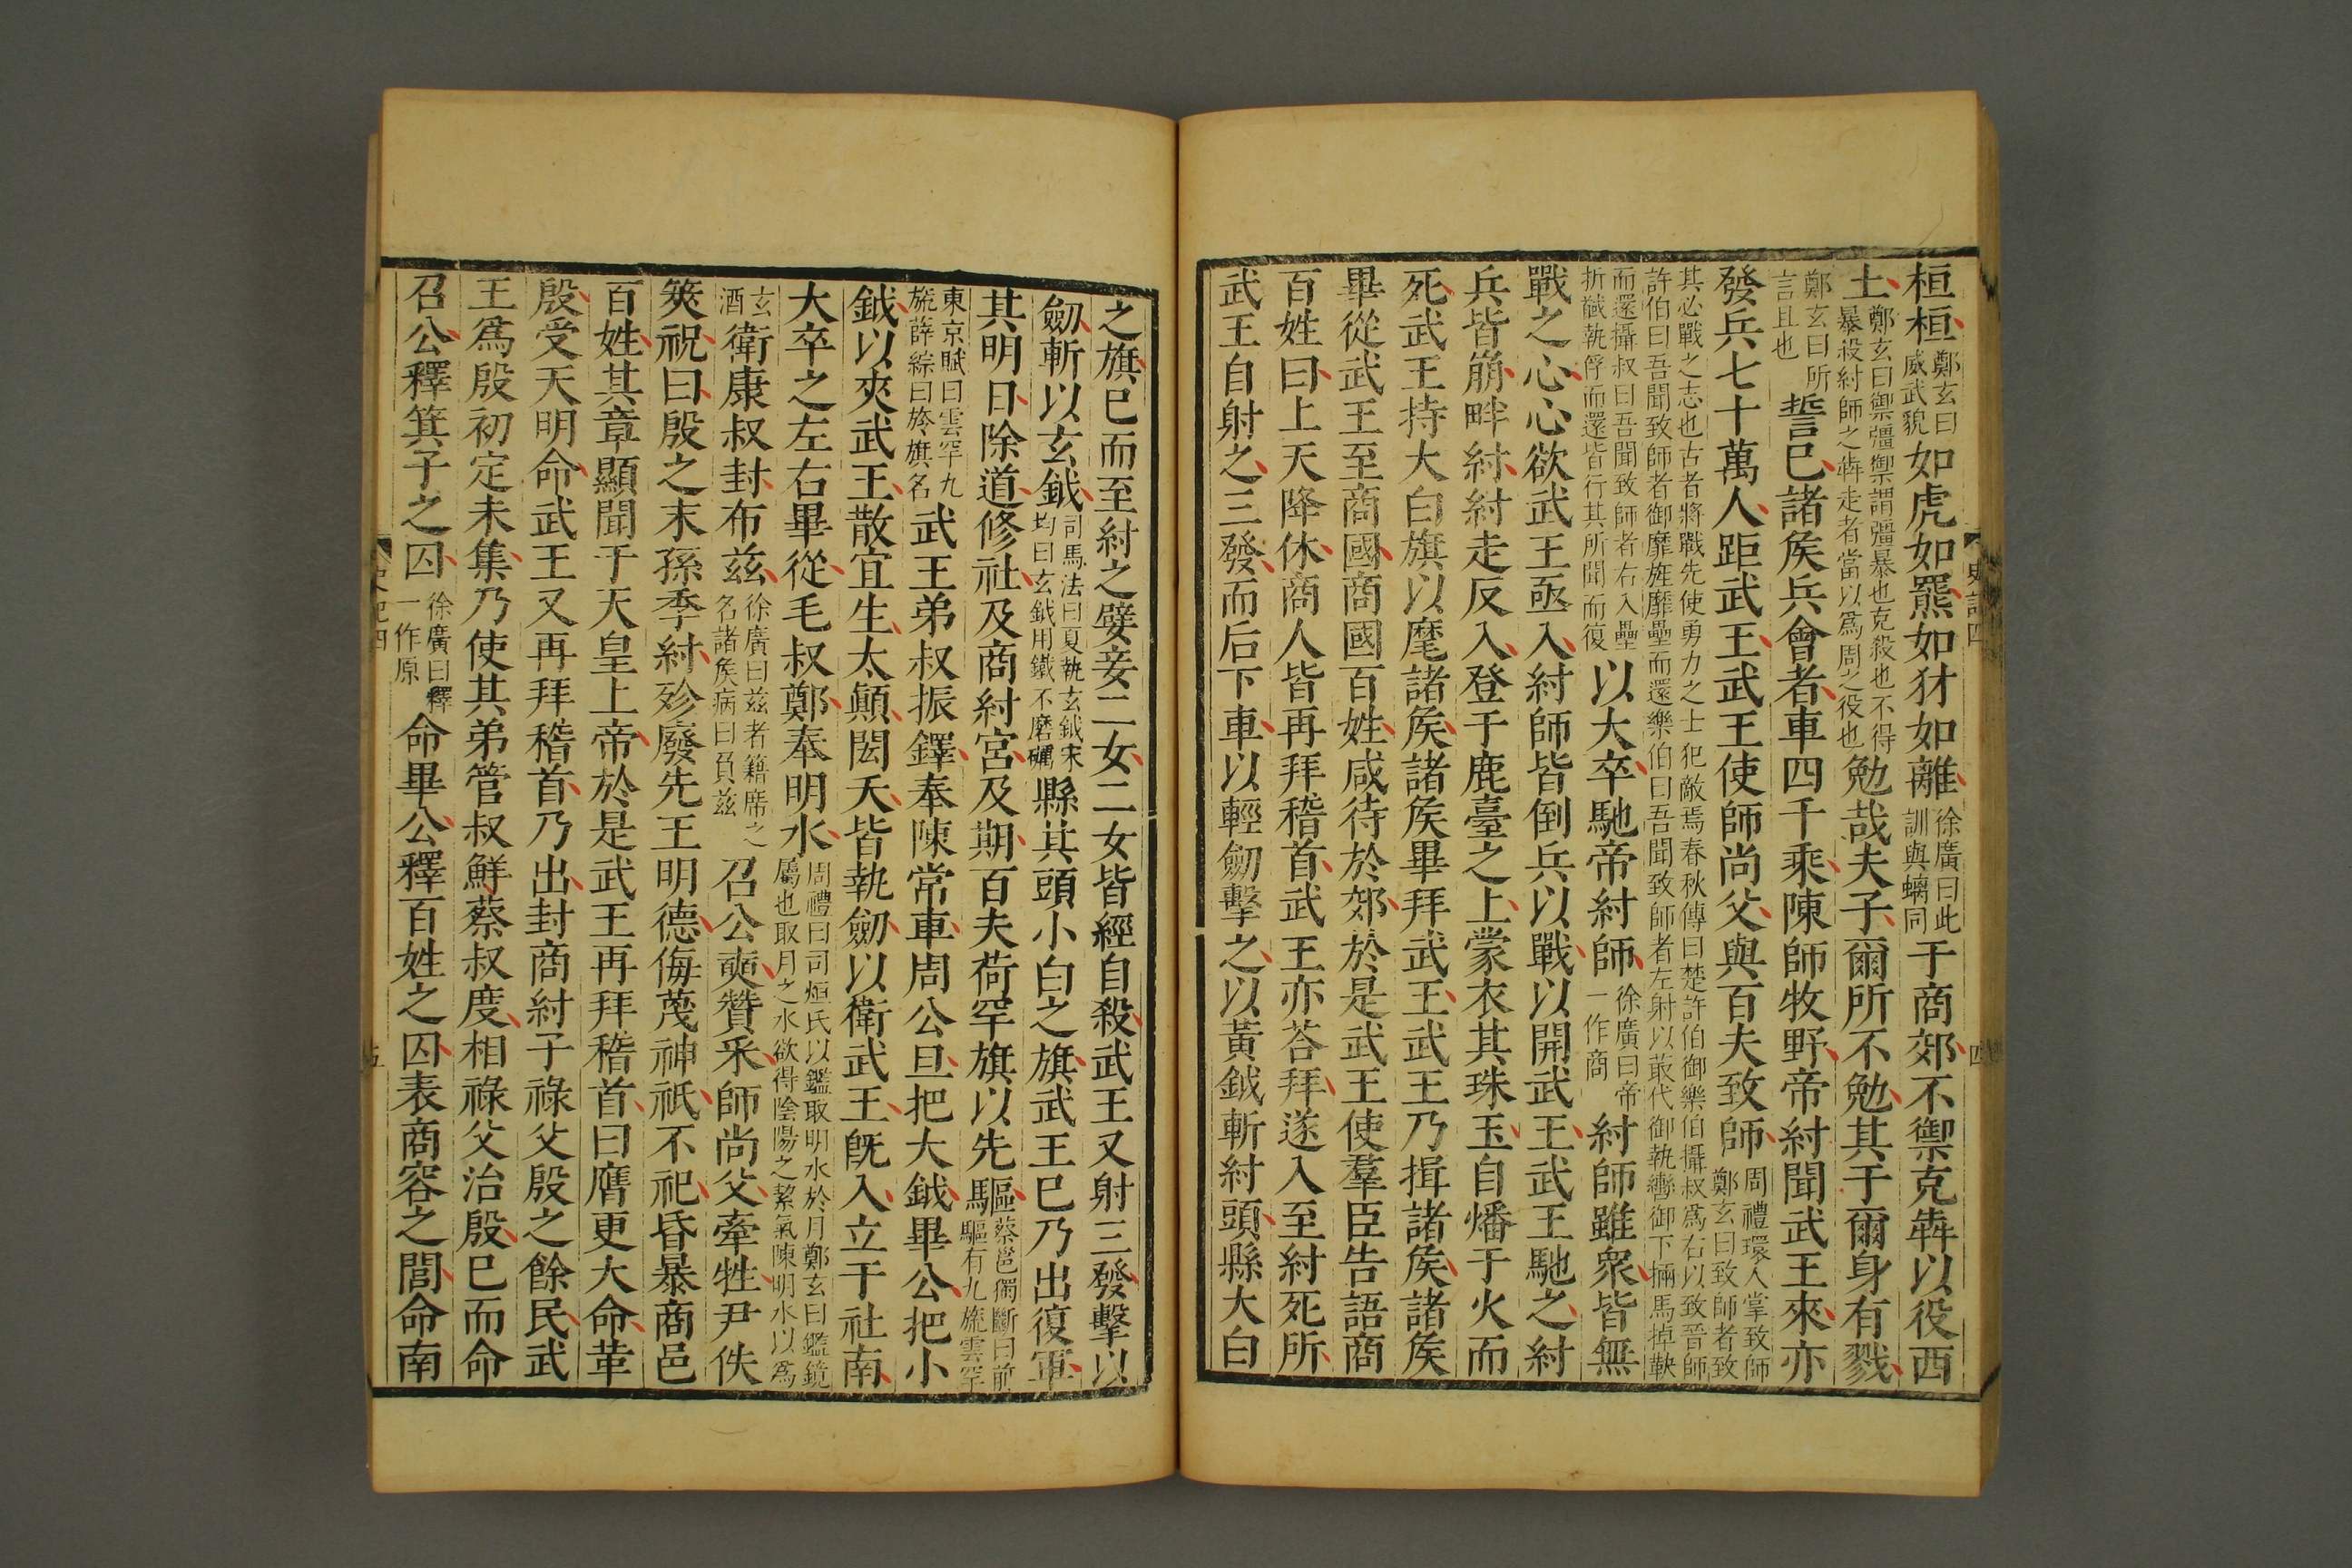 桓桓鄭玄曰威武貌如虎如羆如犲如離徐廣曰此訓與螭同于商郊不禦克犇以役西
土鄭玄曰禦彊禦謂彊暴也克殺也不得暴殺紂師之犇走者當以爲周之役也勉哉夫子爾所不勉其于爾身有戮
鄭玄曰所言且也誓已諸矦兵會者車四千乘陳師牧野帝紂聞武王來亦
發兵七十萬人距武王武王使師尚父與百夫致師周禮環人掌致師鄭玄曰致師者致
其必戰之志也古者將戰先使勇力之士犯敵焉春秋傳曰楚許伯御樂伯攝叔爲右以致晉師
許伯曰吾聞致師者御靡旌靡壘而還樂伯曰吾聞致師者左射以菆代御執轡御下掚馬掉鞅
而還攝叔曰吾聞致師者右入壘折馘執俘而還皆行其所聞而復以大卒馳帝紂師徐廣曰帝一作商紂師雖衆皆無
戰之心心欲武王亟入紂師皆倒兵以戰以開武王武王馳之紂
兵皆崩畔紂紂走反入登于鹿臺之上蒙衣其珠玉自燔于火而
死武王持大白旗以麾諸矦諸矦畢拜武王武王乃揖諸矦諸矦
畢從武王至商國商國百姓咸待於郊於是武王使羣臣告語商
百姓曰上天降休商人皆再拜稽首武王亦荅拜遂入至紂死所
武王自射之三發而后下車以輕劒擊之以黃鉞斬紂頭縣大白
之旗已而至紂之嬖妾二女二女皆經自殺武王又射三發擊以
劒斬以玄鉞司馬法曰夏執玄鉞宋均曰玄鉞用鐵不磨礪縣其頭小白之旗武王已乃出復軍
其明日除道修社及商紂宮及期百夫荷罕旗以先驅蔡邕獨斷曰前驅有九旒雲罕
東京賦曰雲罕九旒薛綜曰旍旗名武王弟叔振鐸奉陳常車周公旦把大鉞畢公把小
鉞以夾武王散宜生太顛閎夭皆執劒以衛武王旣入立于社南
大卒之左右畢從毛叔鄭奉明水周禮曰司烜氏以鑑取明水於月鄭玄曰鑑鏡屬也取月之水欲得陰陽之絜氣陳明水以爲
玄酒衛康叔封布兹徐廣曰兹者籍席之名諸矦病曰負兹召公奭贊采師尚父牽牲尹佚
筴祝曰殷之末孫季紂殄廢先王明德侮蔑神祇不祀昏暴商邑
百姓其章顯聞于天皇上帝於是武王再拜稽首曰膺更大命革
殷受天明命武王又再拜稽首乃出封商紂子祿父殷之餘民武
王爲殷初定未集乃使其弟管叔鮮蔡叔度相祿父治殷已而命
召公釋箕子之囚徐廣曰釋一作原命畢公釋百姓之囚表商容之閭命南
史記四
四
史記四
五